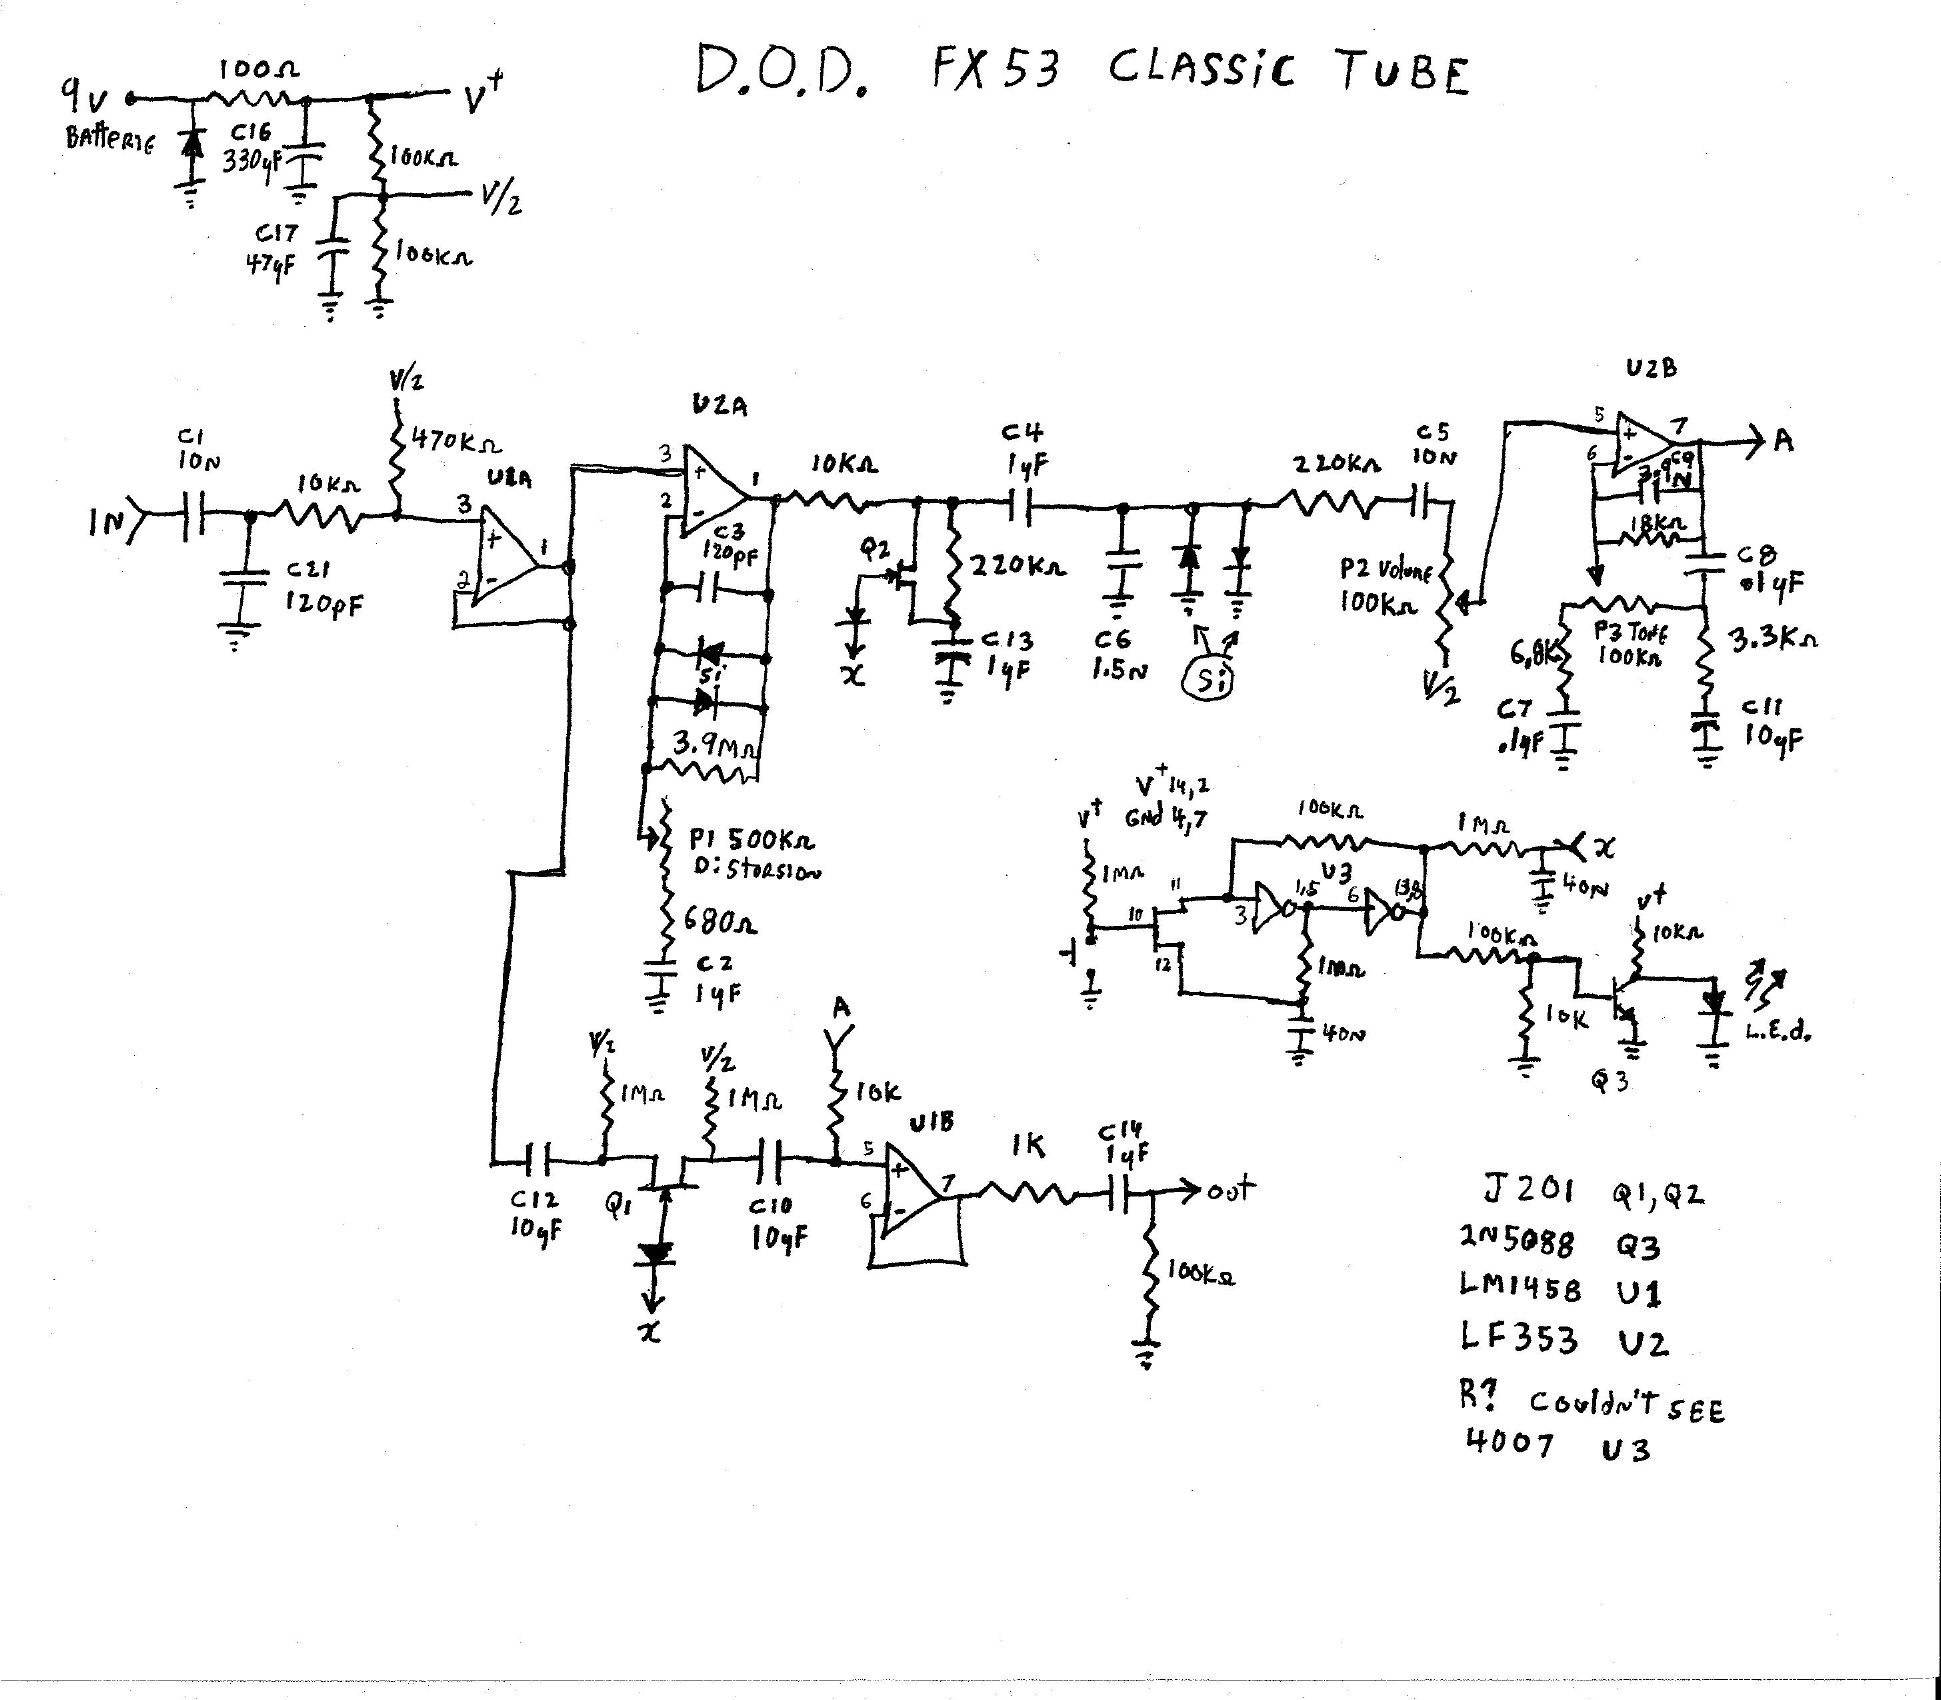 D.O.D. FX53 CLASSiC TUBE
9V
BAtteriE
100Ω
V+
C16
330yF
100KΩ
V/2
C17
47yF
100KΩ
IN
C1
10N
C21
120pF
10KΩ
V/2
470KΩ
U1A
3
2
1
U2A
3
2
1
C3
120pF
Si
3.9MΩ
P1 500KΩ
Di STORSION
680Ω
C2
1yF
10KΩ
Q2
x
220KΩ
C13
1yF
C4
1yF
C6
1.5N
Si
220KΩ
C5
10N
P2 VOlume
100KΩ
V/2
U2B
5
6
7
A
C9
3.9N
18KΩ
C8
.01yF
P3 TONE
100KΩ
6,8K
C7
.1yF
3.3KΩ
C11
10yF
V+ 14,2
GNd 4,7
V+
1MΩ
10
11
12
100KΩ
U3
3
1,5
6
13,8
1MΩ
40N
1MΩ
x
40N
100KΩ
10K
V+
10KΩ
Q3
L.E.d.
C12
10yF
V/2
1MΩ
Q1
x
V/2
1MΩ
C10
10yF
A
10K
U1B
5
6
7
1K
C14
1yF
out
100KΩ
J201 Q1,Q2
2N5088 Q3
LM1458 U1
LF353 U2
R? Couldn't SEE
4007 U3